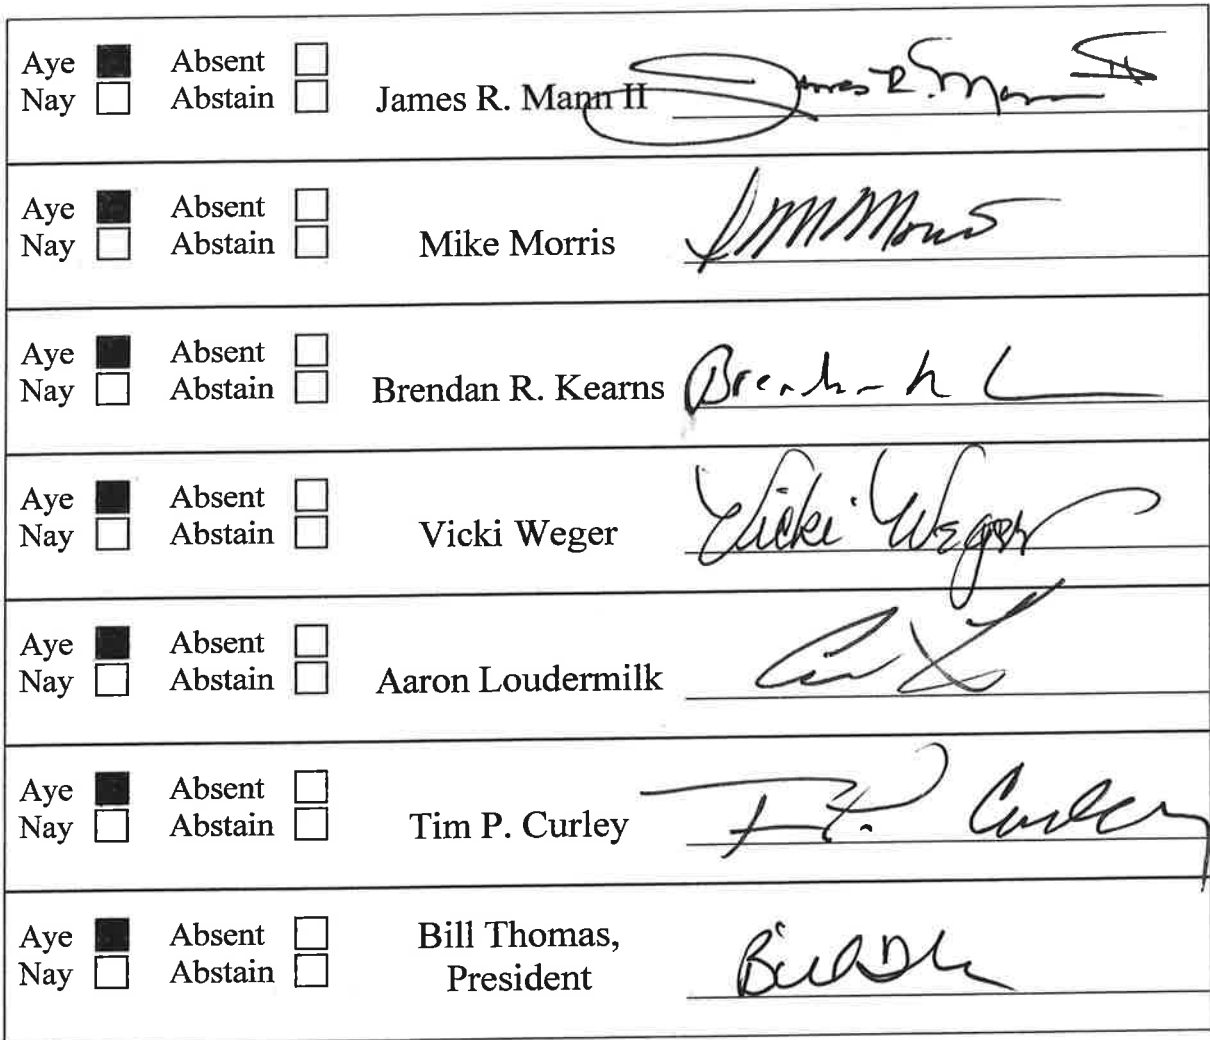 Aye ■ Absent □
Nay □ Abstain □ James R. Mann II James R. Mann II
Aye ■ Absent □
Nay □ Abstain □ Mike Morris
Aye ■ Absent □
Nay □ Abstain □ Brendan R. Kearns
Aye ■ Absent □
Nay □ Abstain □ Vicki Weger Vicki Weger
Aye ■ Absent □
Nay □ Abstain □ Aaron Loudermilk
Aye ■ Absent □
Nay □ Abstain □ Tim P. Curley T. P. Curley
Aye ■ Absent □ Bill Thomas,
Nay □ Abstain □ President